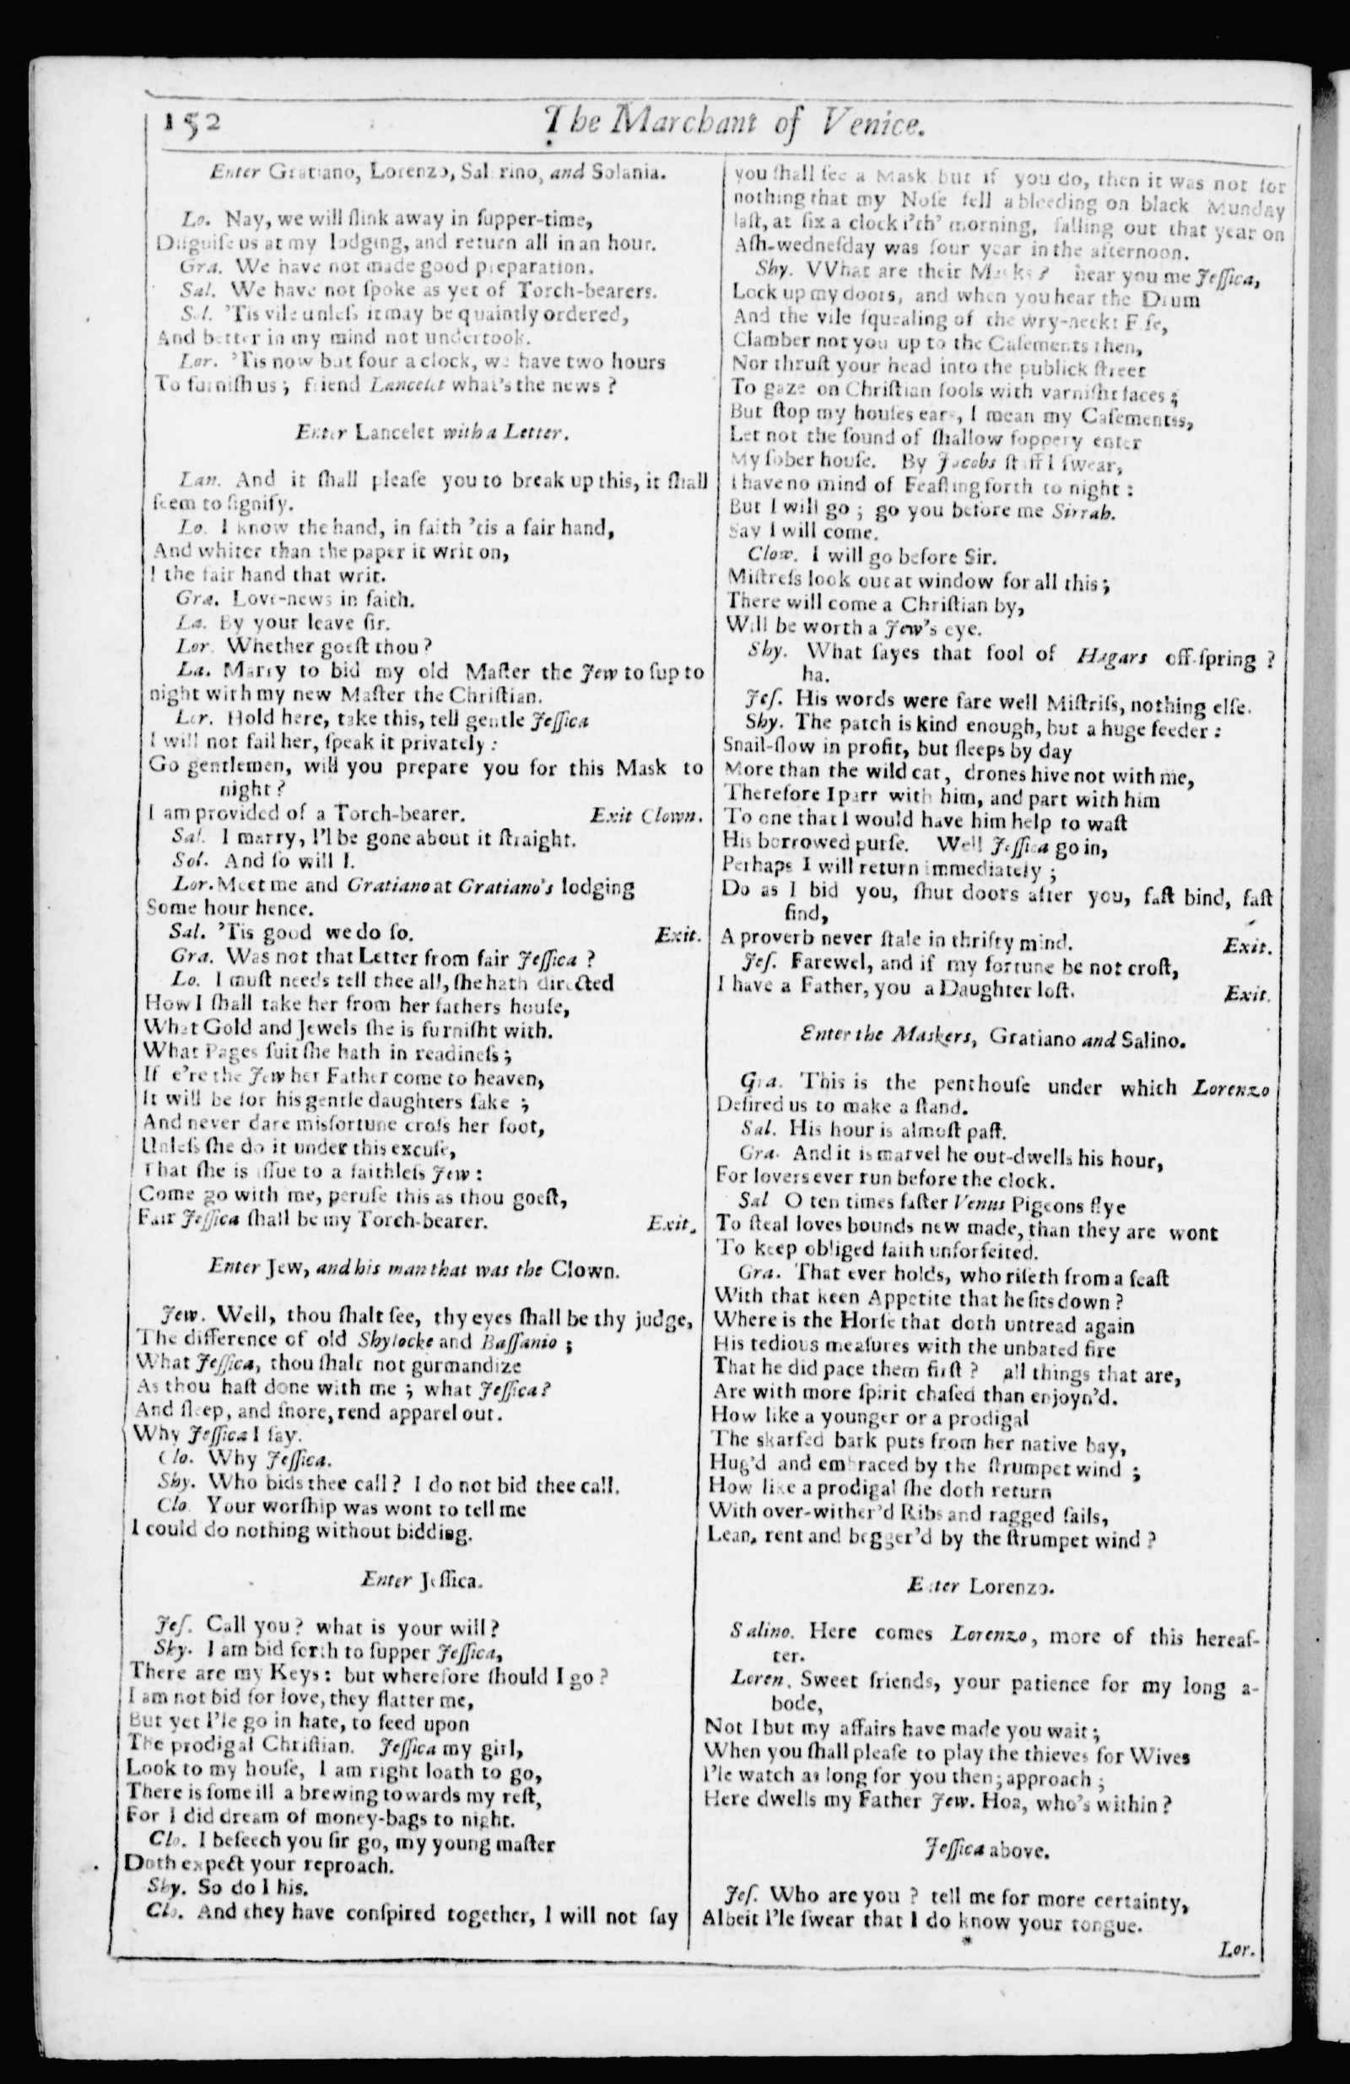 152
The Marchant of Venice.
Enter Gratiano, Lorenzo, Salarino, and Solania.
Lo. Nay, we will ſlink away in ſupper-time,
Diſguiſe us at my lodging, and return all in an hour.
Gra. We have not made good preparation.
Sal. We have not ſpoke as yet of Torch-bearers.
Sol. 'Tis vile unleſs it may be quaintly ordered,
And better in my mind not undertook.
Lor. 'Tis now but four a clock, we have two hours
To furniſh us; friend Lancelet what's the news?
Enter Lancelet with a Letter.
Lan. And it ſhall pleaſe you to break up this, it ſhall
ſeem to ſignify.
Lo. I know the hand, in faith 'tis a fair hand,
And whiter than the paper it writ on,
I the fair hand that writ.
Gra. Love-news in faith.
La. By your leave ſir.
Lor. Whether goeſt thou?
La. Marry to bid my old Maſter the Jew to ſup to
night with my new Maſter the Chriſtian.
Lor. Hold here, take this, tell gentle Jeſſica
I will not fail her, ſpeak it privately:
Go gentlemen, will you prepare you for this Mask to
night?
I am provided of a Torch-bearer. Exit Clown.
Sal. I marry, I'l be gone about it ſtraight.
Sol. And ſo will I.
Lor. Meet me and Gratiano at Gratiano's lodging
Some hour hence.
Sal. 'Tis good we do ſo. Exit.
Gra. Was not that Letter from fair Jeſſica?
Lo. I muſt needs tell thee all, ſhe hath directed
How I ſhall take her from her fathers houſe,
What Gold and Jewels ſhe is furniſht with.
What Pages ſuit ſhe hath in readineſs;
If e're the Jew her Father come to heaven,
It will be for his gentle daughters ſake;
And never dare misfortune croſs her foot,
Unleſs ſhe do it under this excuſe,
That ſhe is iſſue to a faithleſs Jew:
Come go with me, peruſe this as thou goeſt,
Fair Jeſſica ſhall be my Torch-bearer. Exit.
Enter Jew, and his man that was the Clown.
Jew. Well, thou ſhalt ſee, thy eyes ſhall be thy judge,
The difference of old Shylocke and Baſſanio;
What Jeſſica, thou ſhalt not gurmandize
As thou haſt done with me; what Jeſſica?
And ſleep, and ſnore, rend apparel out.
Why Jeſſica I ſay.
Clo. Why Jeſſica.
Shy. Who bids thee call? I do not bid thee call.
Clo. Your worſhip was wont to tell me
I could do nothing without bidding.
Enter Jeſſica.
Jeſ. Call you? what is your will?
Shy. I am bid forth to ſupper Jeſſica,
There are my Keys: but wherefore ſhould I go?
I am not bid for love, they flatter me,
But yet I'le go in hate, to feed upon
The prodigal Chriſtian. Jeſſica my girl,
Look to my houſe, I am right loath to go,
There is ſome ill a brewing towards my reſt,
For I did dream of money-bags to night.
Clo. I beſeech you ſir go, my young maſter
Doth expect your reproach.
Shy. So do I his.
Clo. And they have conſpired together, I will not ſay
you ſhall ſee a Mask but if you do, then it was not for
nothing that my Noſe fell a bleeding on black Munday
laſt, at ſix a clock i'th' morning, falling out that year on
Aſh-wedneſday was four year in the afternoon.
Shy. VVhat are their Masks? hear you me Jeſſica,
Lock up my doors, and when you hear the Drum
And the vile ſquealing of the wry-neckt Fife,
Clamber not you up to the Caſements then,
Nor thruſt your head into the publick ſtreet
To gaze on Chriſtian fools with varniſht faces;
But ſtop my houſes ears, I mean my Caſements,
Let not the ſound of ſhallow foppery enter
My ſober houſe. By Jacobs ſtaff I ſwear,
I have no mind of Feaſting forth to night:
But I will go; go you before me Sirrah.
Say I will come.
Clow. I will go before Sir.
Miſtreſs look out at window for all this;
There will come a Chriſtian by,
Will be worth a Jew's eye.
Shy. What ſayes that fool of Hagars off-ſpring?
ha.
Jeſ. His words were fare well Miſtriſs, nothing elſe.
Shy. The patch is kind enough, but a huge feeder:
Snail-ſlow in profit, but ſleeps by day
More than the wild cat, drones hive not with me,
Therefore I parr with him, and part with him
To one that I would have him help to waſt
His borrowed purſe. Well Jeſſica go in,
Perhaps I will return immediately;
Do as I bid you, ſhut doors after you, faſt bind, faſt
find,
A proverb never ſtale in thrifty mind. Exit.
Jeſ. Farewel, and if my fortune be not croſt,
I have a Father, you a Daughter loſt. Exit.
Enter the Maskers, Gratiano and Salino.
Gra. This is the penthouſe under which Lorenzo
Deſired us to make a ſtand.
Sal. His hour is almoſt paſt.
Gra. And it is marvel he out-dwells his hour,
For lovers ever run before the clock.
Sal O ten times faſter Venus Pigeons flye
To ſteal loves bounds new made, than they are wont
To keep obliged faith unforfeited.
Gra. That ever holds, who riſeth from a feaſt
With that keen Appetite that he ſits down?
Where is the Horſe that doth untread again
His tedious meaſures with the unbated fire
That he did pace them firſt? all things that are,
Are with more ſpirit chaſed than enjoyn'd.
How like a younger or a prodigal
The skarfed bark puts from her native bay,
Hug'd and embraced by the ſtrumpet wind;
How like a prodigal ſhe doth return
With over-wither'd Ribs and ragged ſails,
Lean, rent and begger'd by the ſtrumpet wind?
Enter Lorenzo.
Salino. Here comes Lorenzo, more of this hereaf-
ter.
Loren. Sweet friends, your patience for my long a-
bode,
Not I but my affairs have made you wait;
When you ſhall pleaſe to play the thieves for Wives
I'le watch as long for you then; approach;
Here dwells my Father Jew. Hoa, who's within?
Jeſſica above.
Jeſ. Who are you? tell me for more certainty,
Albeit I'le ſwear that I do know your tongue.
Lor.